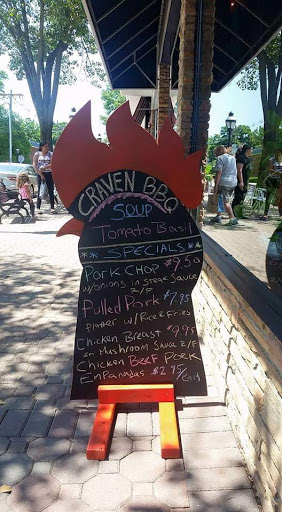 CRAVEN BBQ
SOUP
Tomato Basil
** SPECIALS **
PORK CHOP $9.50
w/onions in steak Sauce
R/F
Pulled Pork $7.95
Platter w/Rice & Fries
Chicken Breast $9.95
in Mushroom Sauce R/F
Chicken Beef Pork
EmPanadas $2.75/Each